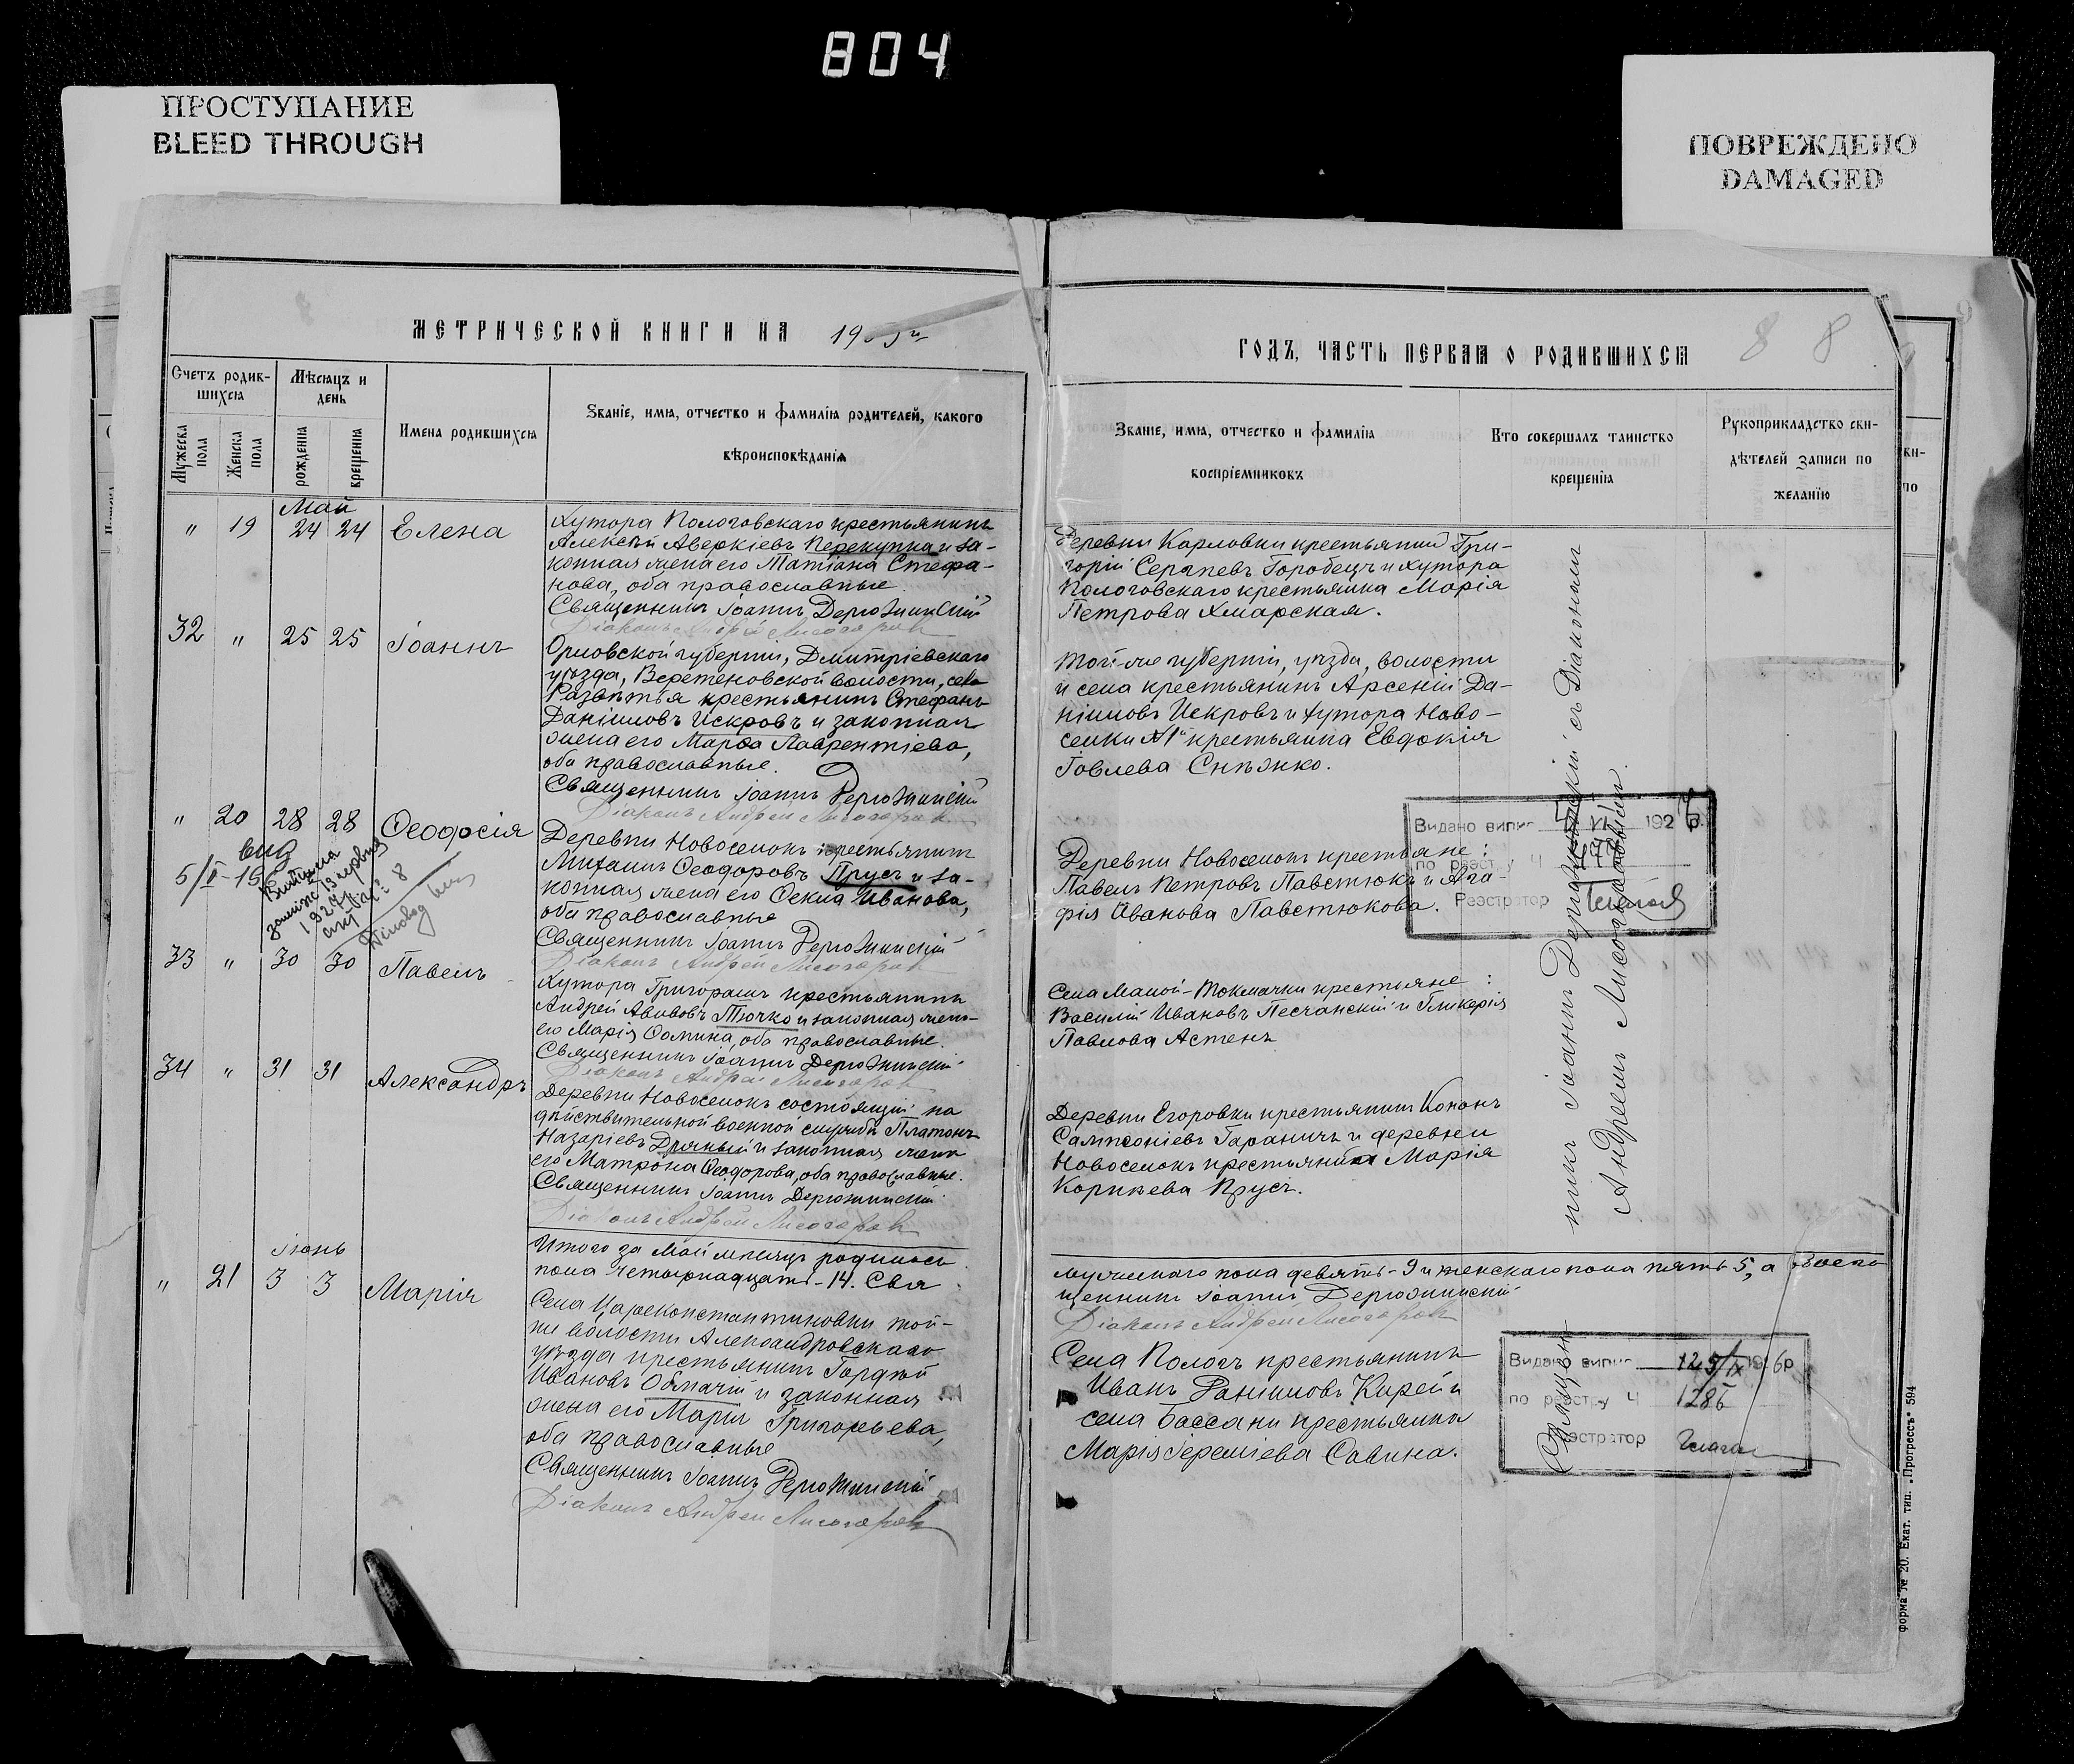 804
ПРОСТУПАНИЕ
BLEED THROUGH
ПОВРЕЖДЕНО
DAMAGED
МЕТРИЧЕСКОЙ КНИГИ НА 19
ГОДЪ, ЧАСТЬ ПЕРВАЯ О РОДИВШИХСЯ
8 8
Счетъ родив-
шихся
Мужеска пола
Женска пола
Мѣсяцъ и
день
рожденія
крещенія
Имена родившихся
Званіе, имя, отчество и фамилія родителей, какого
вѣроисповѣданія
Званіе, имя, отчество и фамилія
воспріемниковъ
Кто совершалъ таинство
крещенія
Рукоприкладство сви-
дѣтелей записи по
желанію
Май
" 19 24 24 Елена
Хутора Пологовскаго крестьянинъ
Алексѣй Аверкіевъ Перекупка и за-
конная жена его Татіана Стефа-
нова, оба православные.
Священникъ Іоаннъ Дерюжинскій
Діаконъ Андрей Лисогоров
Деревни Карловки крестьянин Гри-
горій Сергіевъ Горобецъ и хутора
Пологовскаго крестьянка Марія
Петрова Хмарская.
32 " 25 25 Іоаннъ
Орловской губерніи, Дмитріевскаго
уѣзда, Веретеновской волости, села
Развѣтья крестьянинъ Стефанъ
Даніиловъ Искровъ и законная
жена его Марѳа Лаврентіева,
оба православные.
Священникъ Іоаннъ Дерюжинскій
Діаконъ Андрей Лисогоров
Той же губерніи, уѣзда, волости
и села крестьянинъ Арсеній Да-
ніиловъ Искровъ и хутора Ново-
селки № 1й крестьянка Евдокія
Іовлева Снѣжко.
" 20 28 28 Ѳеодосія
Деревни Новоселокъ крестьянинъ
Михаилъ Ѳеодоровъ Прусъ и за-
конная жена его Ѳекла Иванова,
оба православные
Священникъ Іоаннъ Дерюжинскій
Діаконъ Андрей Лисогоров
Деревни Новоселокъ крестьяне:
Павелъ Петровъ Павстюкъ и Ага-
фія Иванова Павстюкова.
вид
1927
8
Видано випис 5 VI 192
по реєстру Ч
Реэстратор
33 " 30 30 Павелъ
Хутора Григораша крестьянинъ
Андрей Авивовъ Тючко и законная жена
его Марія Ѳомина, оба православные.
Священникъ Іоаннъ Дерюжинскій
Діаконъ Андрей Лисогоров
Села Малой-Токмачки крестьяне:
Василій Ивановъ Песчанскій и Гликерія
Павлова Астенъ
34 " 31 31 Александръ
Деревни Новоселокъ состоящій на
дѣйствительной военной службѣ Платонъ
Назаріевъ Дрячный и законная жена
его Матрона Ѳеодорова, оба православные.
Священникъ Іоаннъ Дерюжинскій
Діаконъ Андрей Лисогоров
Деревни Егоровки крестьянинъ Кононъ
Сампсоніевъ Гараничъ и деревни
Новоселокъ крестьянка Марія
Корнѣева Прусъ.
Итого за Май мѣсяцъ родилось мужескаго пола девять - 9 и женскаго пола пять 5, а обоего
пола четырнадцать - 14. Священникъ Іоаннъ Дерюжинскій
Діаконъ Андрей Лисогоров
Іюнь
" 21 3 3 Марія
Села Цареконстантиновки той-
же волости Александровскаго
уѣзда крестьянинъ Гордѣй
Ивановъ Облачій и законная
жена его Марія Григорьева,
оба православные
Священникъ Іоаннъ Дерюжинскій
Діаконъ Андрей Лисогоров
Села Пологъ крестьянинъ
Иванъ Даніиловъ Кирей и
села Бассани крестьянка
Марія Іереміева Савина.
Видано випис 192 6р
по реєстру Ч 1286
Реэстратор
Священникъ Іоаннъ Дерюжинскій съ Діакономъ
Андреемъ Лисогоровымъ.
форма № 20. Екат. тип. „Прогрессъ" 594